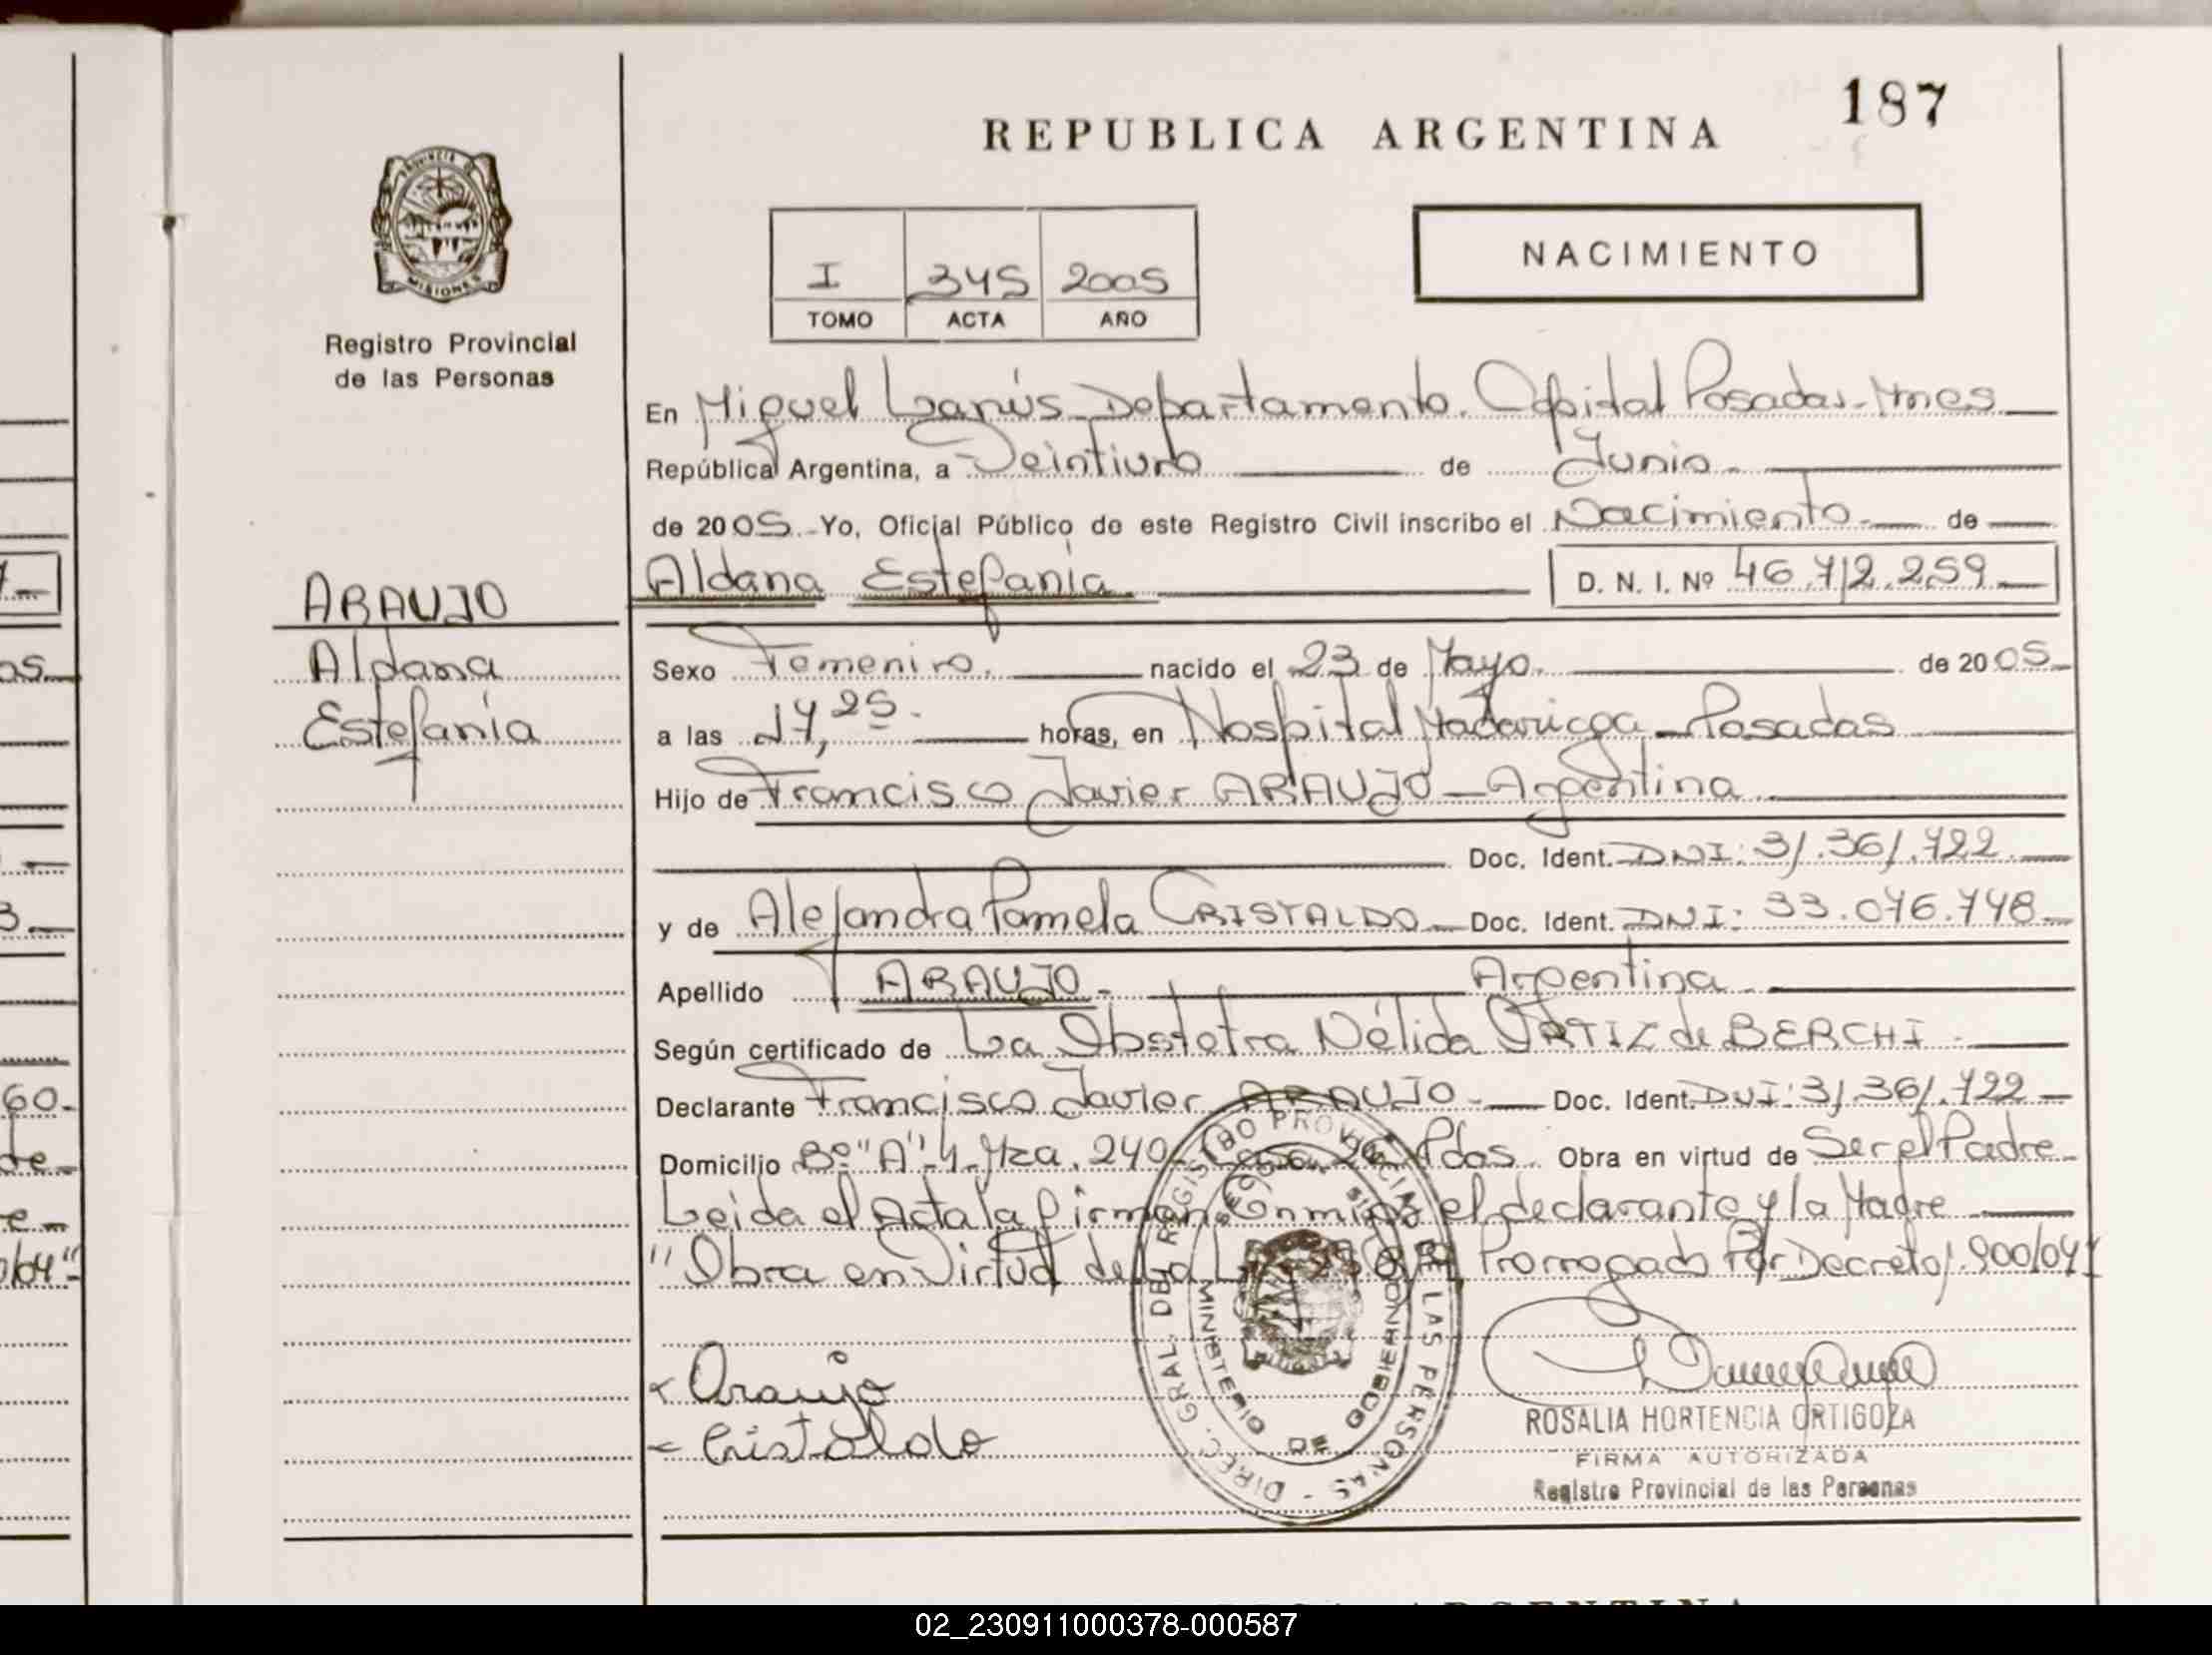 187
REPUBLICA ARGENTINA
PROVINCIA DE
MISIONES
Registro Provincial
de las Personas
NACIMIENTO
I 345 2005
TOMO ACTA AÑO
En Miguel Lanús Departamento Capital Posadas-Mnes
República Argentina, a Veintiuno de Junio
de 2005 - Yo, Oficial Público de este Registro Civil inscribo el Nacimiento de
ARAUJO
Aldana
Estefanía
Aldana Estefanía D. N. I. Nº 46.712.259
Sexo Femenino. nacido el 23 de Mayo. de 2005
a las 14,25 horas, en Hospital Madariaga - Posadas
Hijo de Francisco Javier ARAUJO - Argentina
Doc. Ident. DNI: 31.361.722
y de Alejandra Pamela CRISTALDO - Doc. Ident. DNI: 33.076.748
Apellido ARAUJO - Argentina
Según certificado de La Obstetra Nélida ORTIZ de BERCHI
Declarante Francisco Javier ARAUJO - Doc. Ident. DNI: 31.361.722
Domicilio Bº "A"-4-Mza. 240 Casa 26 Pdas. Obra en virtud de Ser el Padre
Leida el Acta la firman Conmigo el declarante y la Madre
"Obra en Virtud de la Prorrogado Por Decreto 900/04"
Araujo
Cristaldo
DIREC. GRAL. DEL REGISTRO PROVINCIAL DE LAS PERSONAS
MINISTERIO DE GOBIERNO
ROSALIA HORTENCIA ORTIGOZA
FIRMA AUTORIZADA
Registro Provincial de las Personas
02_230911000378-000587